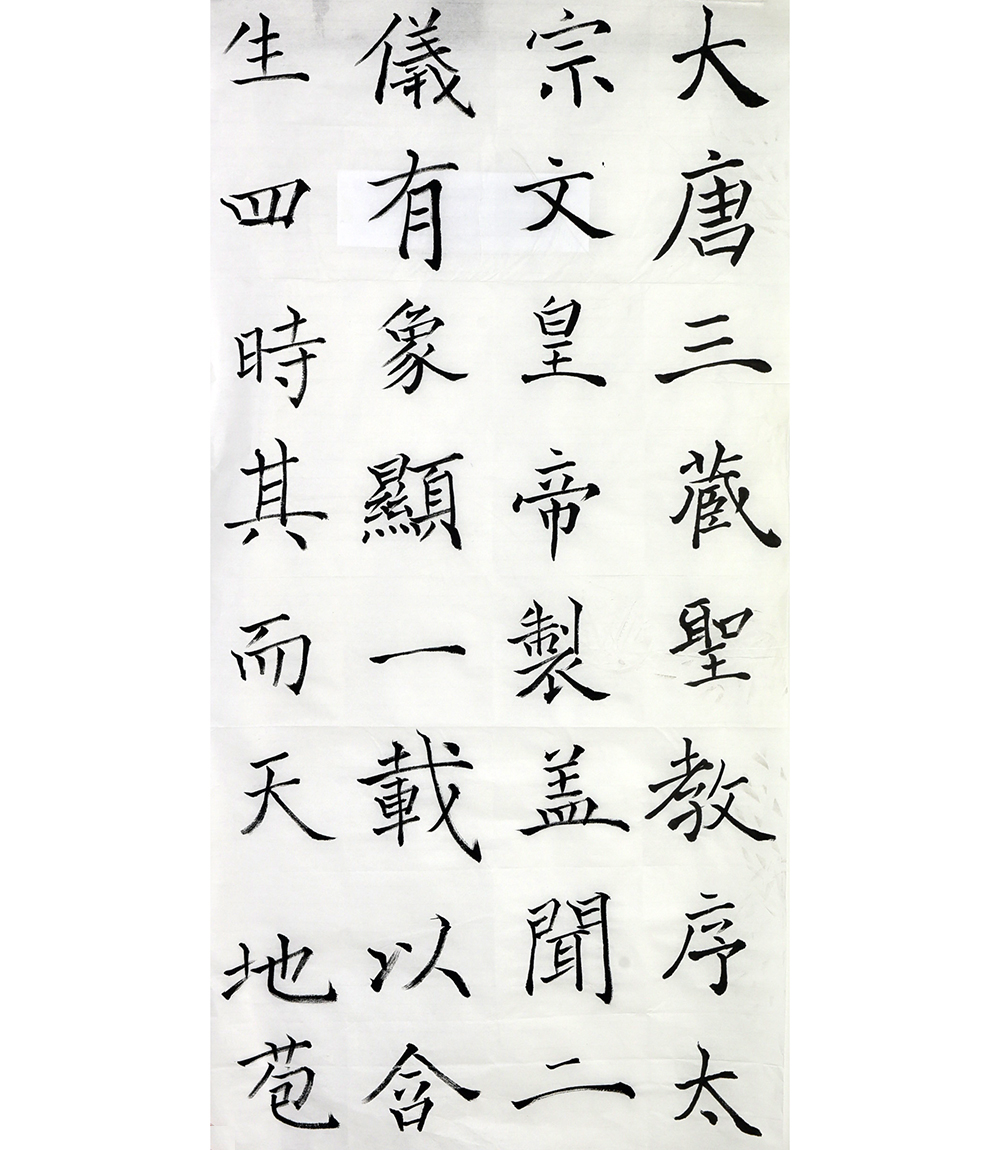 大唐三藏聖教序太
宗文皇帝製盖聞二
儀有象顯一載以含
生四時其而天地苞